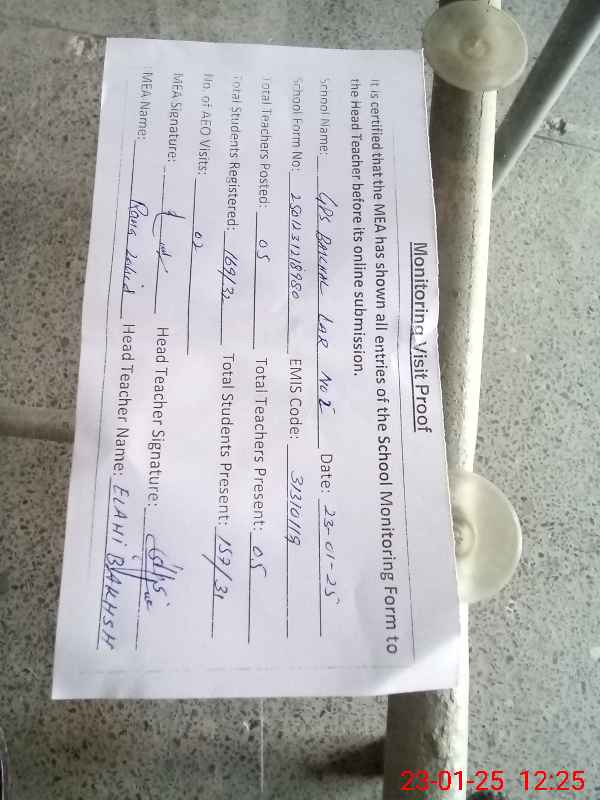 Monitoring Visit Proof
It is certified that the MEA has shown all entries of the School Monitoring Form to
the Head Teacher before its online submission.
School Name: GPS BAKHAR LAR NO 2 Date: 23-01-25
School Form No: 2501231218980 EMIS Code: 31310119
Total Teachers Posted: 05 Total Teachers Present: 05
Total Students Registered: 169/32 Total Students Present: 159/31
No. of AEO Visits: 02
MEA Signature: Head Teacher Signature:
MEA Name: Rana Head Teacher Name: ELAHI BAKHSH
23-01-25 12:25